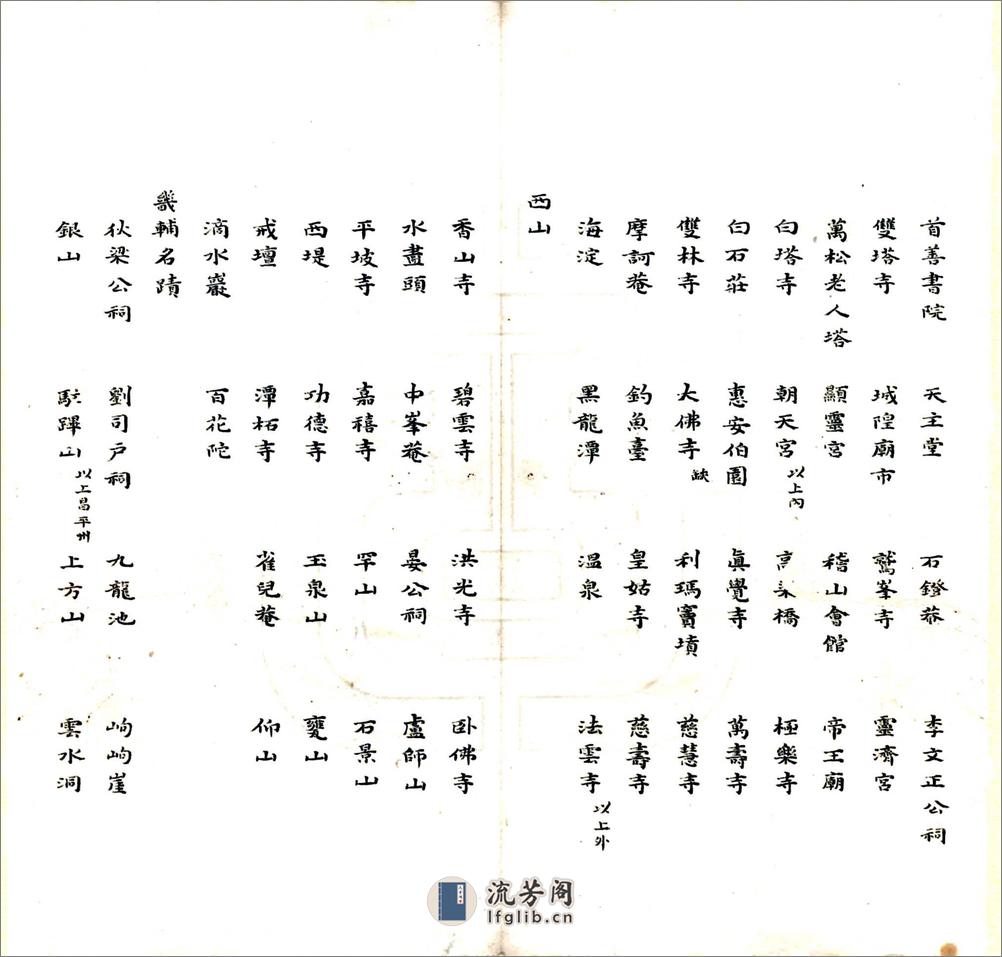 首善書院 天主堂 石鐙菴 李文正公祠
雙塔寺 城隍廟市 鷲峯寺 靈濟宮
萬松老人塔 顯靈宮 稽山會館 帝王廟
白塔寺 朝天宮以上內 高梁橋 極樂寺
白石莊 惠安伯園 眞覺寺 萬壽寺
雙林寺 大佛寺缺 利瑪竇墳 慈慧寺
摩訶菴 釣魚臺 皇姑寺 慈壽寺
海淀 黑龍潭 溫泉 法雲寺以上外
西山
香山寺 碧雲寺 洪光寺 卧佛寺
水盡頭 中峯菴 晏公祠 盧師山
平坡寺 嘉禧寺 罕山 石景山
西堤 功德寺 玉泉山 甕山
戒壇 潭柘寺 雀兒菴 仰山
滴水巖 百花陀
畿輔名蹟
狄梁公祠 劉司户祠 九龍池 岣岣崖
銀山 駐蹕山以上昌平州 上方山 雲水洞
流芳阁
lfglib.cn